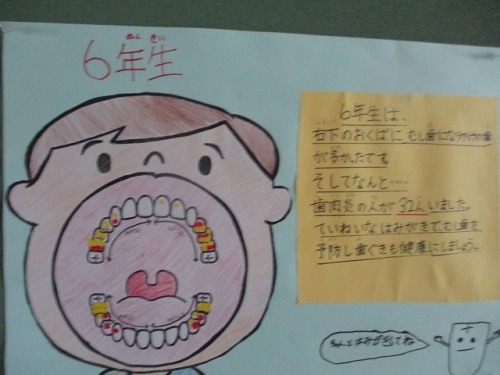 ねんせい
6年生
6年生は、
右下のおくばに むし歯になりかけの歯
が多かったです
そしてなんと…
歯肉炎の人が 32人いました。
ていねいなはみがきで、むし歯を
予防し歯ぐきも健康にしましょう。
ちゃんとはみがきしてね